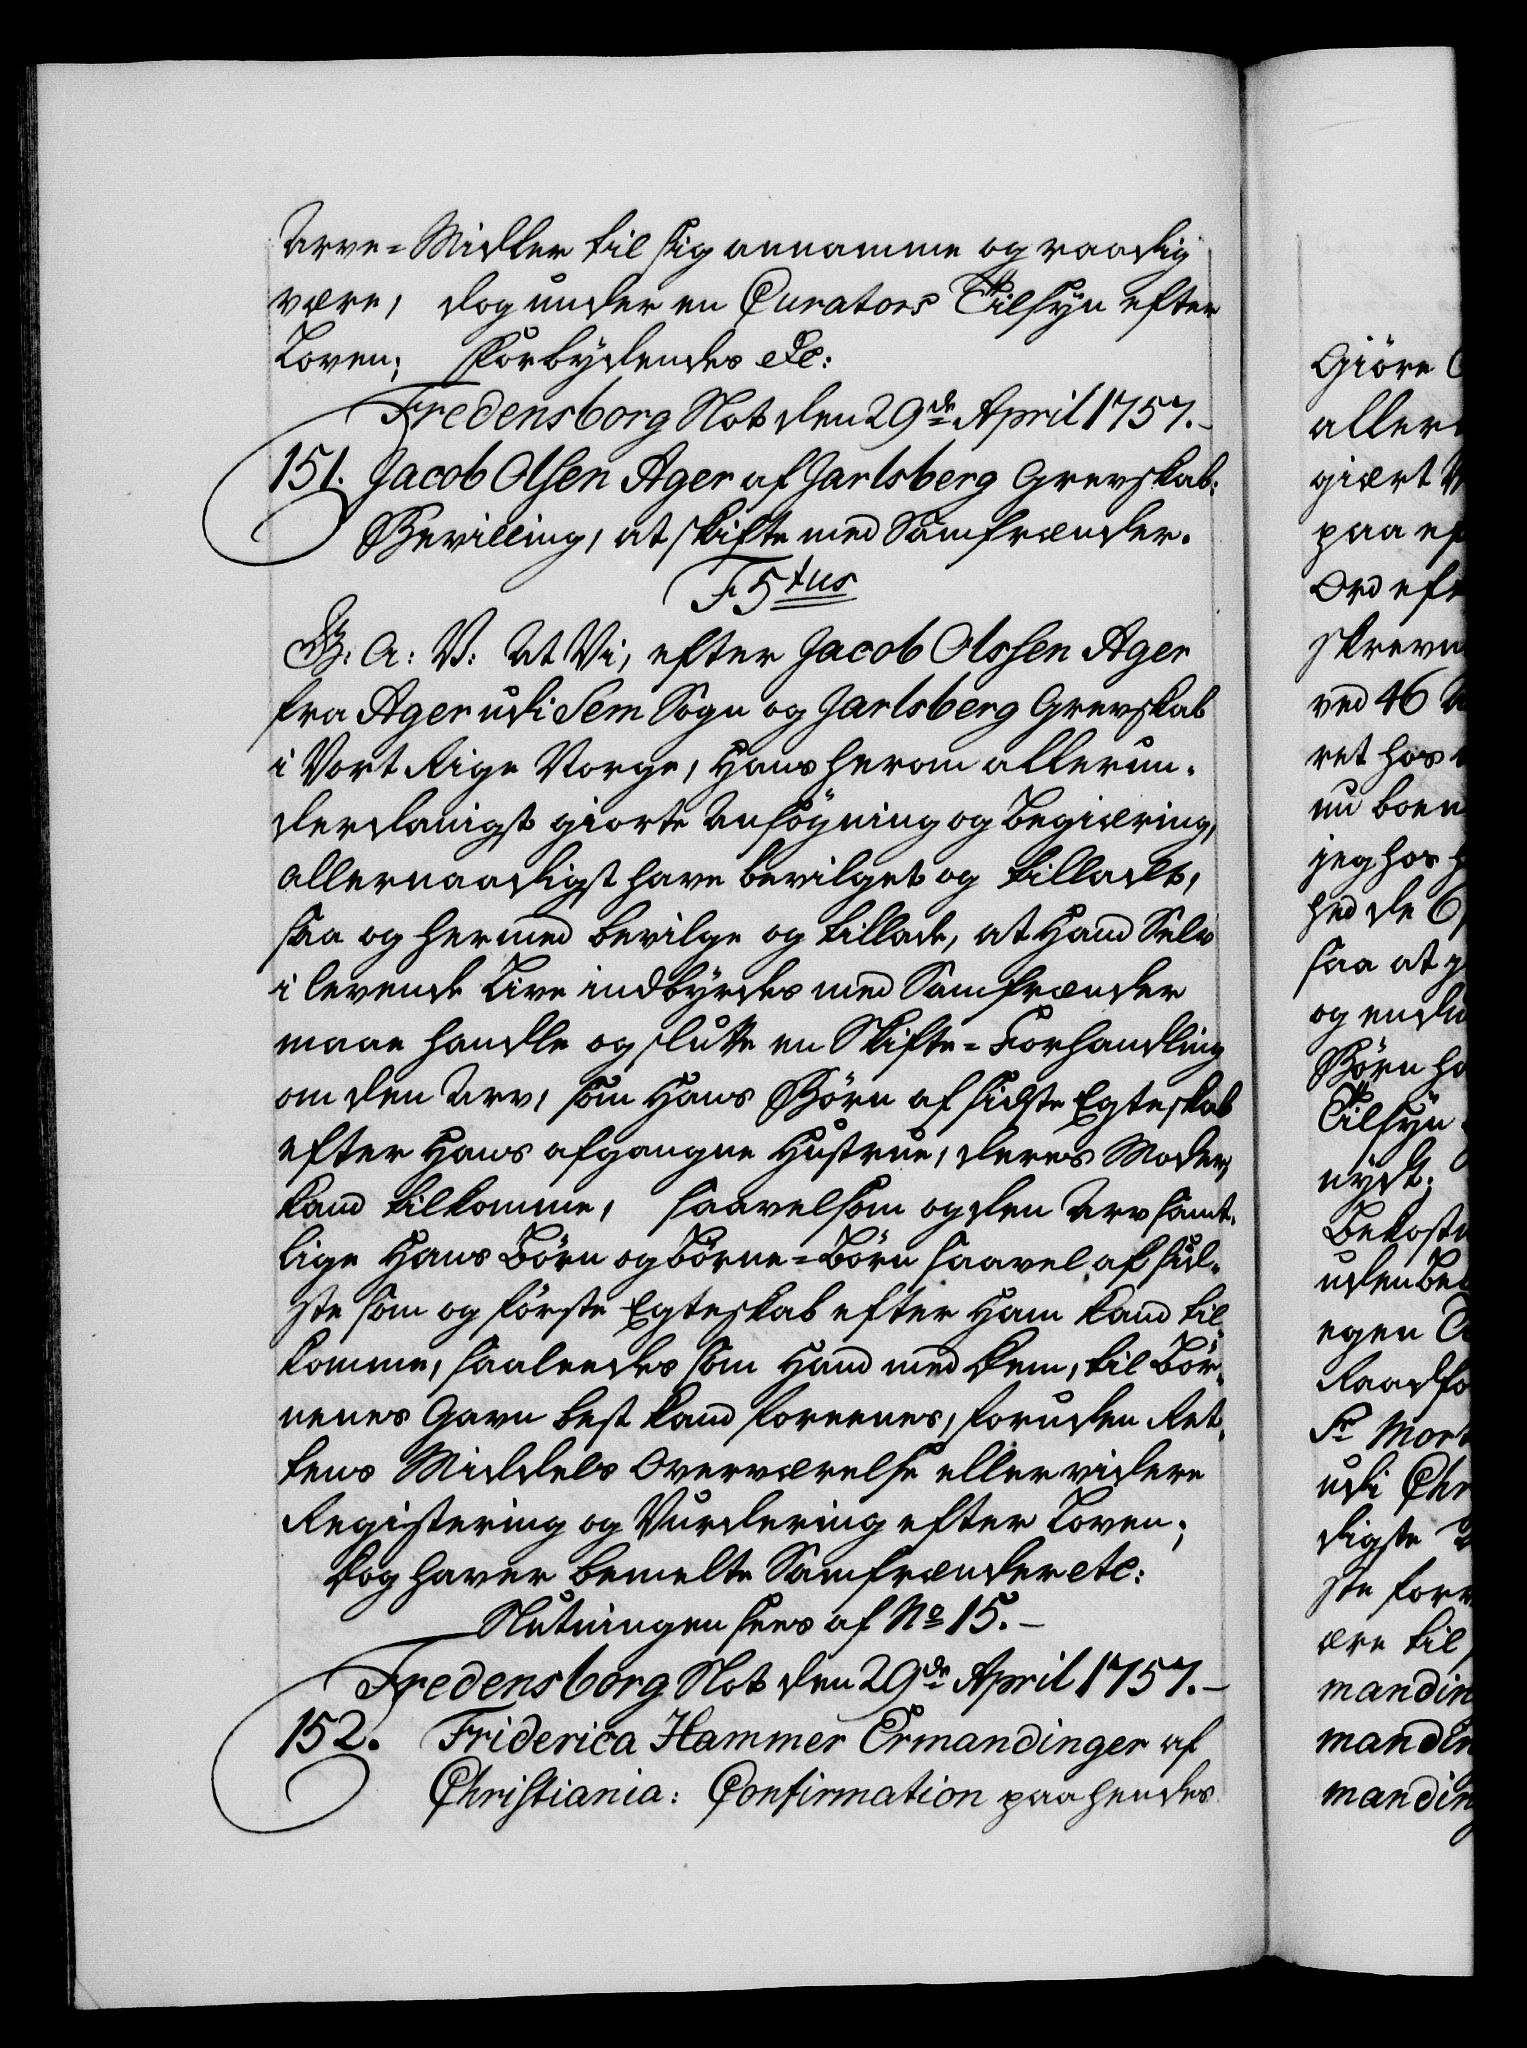 Arve-Midler til sig annamme og raadig
være, dog under en Curators Tilsÿn efter
Loven; Forbÿdendes etc:
Fredensborg Slot den 29de April 1757.
151. Jacob Olsen Ager af Jarlsberg Grevskab:
Bevilling, at skifte med Samfrænder.
F5tus
G: A: V: At Vi, efter Jacob Olssen Ager
fra Ager udi Sem Sogn og Jarlsberg Grevskab
i Vort Rige Norge, Hans herom allerun-
derdanigst giorte Ansøgning og Begiæring,
allernaadigst have bevilget og tilladt,
saa og hermed bevilge og tillade, at Hand Selv
i levende Live indbÿrdes med Samfrænder
maae handle og slutte en Skifte-Forhandling
om den Arv, som Hans Börn af sidste Egteskab
efter Hans afgangne Hustrue, deres Moder,
kand tilkomme, saavelsom og den Arv samt-
lige Hans Börn og Börne-Börn saavel af sid-
ste som og förste Egteskab efter Ham kand til-
komme, saaleedes som Hand med dem, til Bör-
nenes Gavn best kand foreenes, foruden Ret-
tens Middels Overværelse eller videre
Registering og Vurdering efter Loven;
Dog haver bemelte Samfrænder etc:
Slutningen sees af No 15.
Fredensborg Slot den 29de April 1757.
152. Friderica Hammer Ermandinger af
Christiania: Confirmation paa hendes
Giöre
aller
giært
paa ef
Ord eft
skreve
ved 46
ret hos
nu boen
jeg hos
hed de 6
saa at
og endn
Börn ha
Tilsÿn
nÿdt;
Bekostn
uden Be
egen
Raadfø
Sr Mor
udi Chr
digste
ste for
ære til
mandin
mandin
mandin